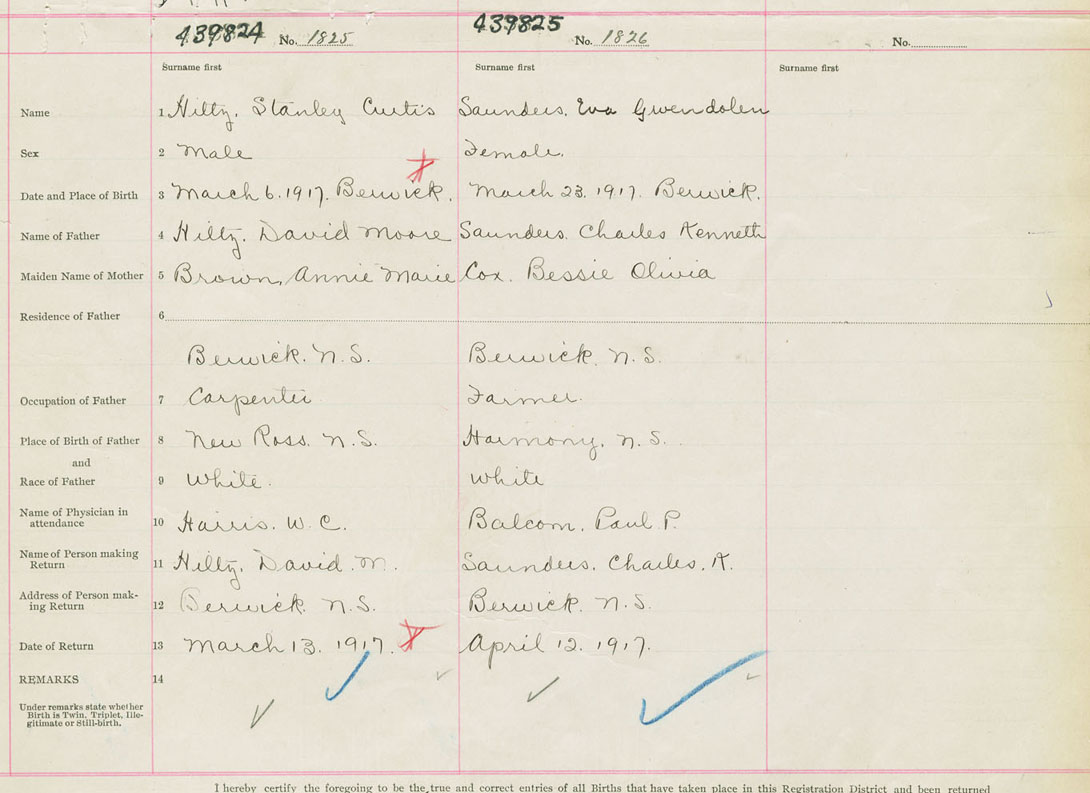 439824 No. 1825 439825 No. 1826 No.
Surname first Surname first Surname first
Name 1 Hiltz, Stanley Curtis Saunders, Eva Gwendolen
Sex 2 Male Female.
Date and Place of Birth 3 March 6. 1917. Berwick. March 23. 1917. Berwick.
Name of Father 4 Hiltz, David Moore Saunders. Charles Kenneth
Maiden Name of Mother 5 Brown, Annie Marie Cox. Bessie Olivia
Residence of Father 6
Berwick. N.S. Berwick. N.S.
Occupation of Father 7 Carpenter Farmer.
Place of Birth of Father 8 New Ross. N.S. Harmony, N.S.
and
Race of Father 9 White. White
Name of Physician in
attendance 10 Harris. W. C. Balcom. Paul P.
Name of Person making
Return 11 Hiltz, David. M. Saunders. Charles. K.
Address of Person mak-
ing Return 12 Berwick. N.S. Berwick. N.S.
Date of Return 13 March 13. 1917. April 12. 1917.
REMARKS 14
Under remarks state whether
Birth is Twin, Triplet, Ille-
gitimate or Still-birth.
I hereby certify the foregoing to be the true and correct entries of all Births that have taken place in this Registration District and been returned